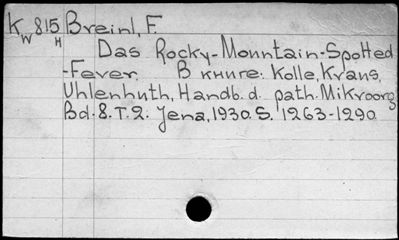 K 815 Breinl, F.
W H
Das Rocky-Mountain-Spotted
-Fever. В книге: Kolle, Kraus,
Uhlenhuth, Handb. d. path. Mikroorg.
Bd. 8. T. 2. Jena, 1930. S. 1263-1290